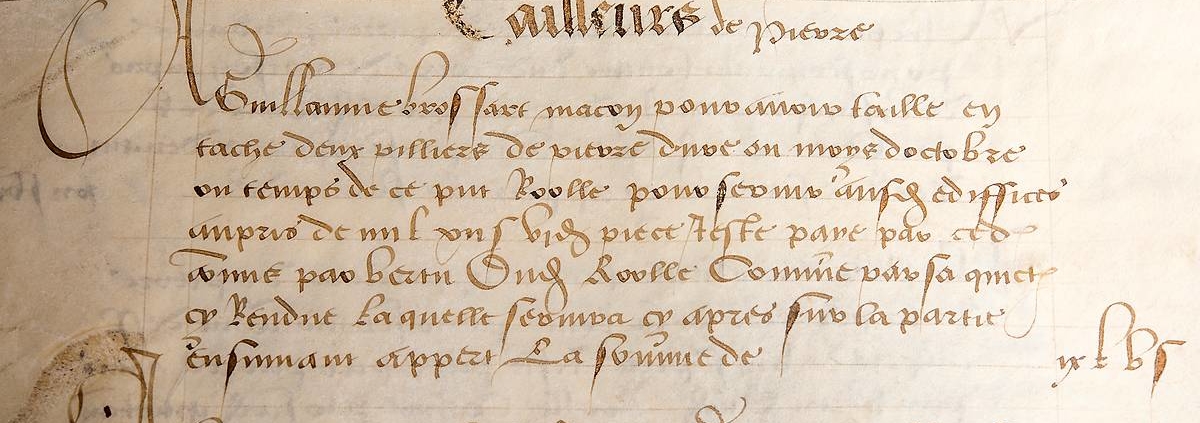 Tailleurs de pierre
A Guillaume brossart macon pour avoir taille en
tache deux pilliers de pierre dure ou moys doctobre
ou temps de ce pnt Roolle pour servir ausd edifices
au pris de iiii l piece Este paye par
par vertu Dud Roolle Comme par sa quict
cy Rendue Laquelle servira cy apres sur la partie
Ensuivant appert La somme de ix l